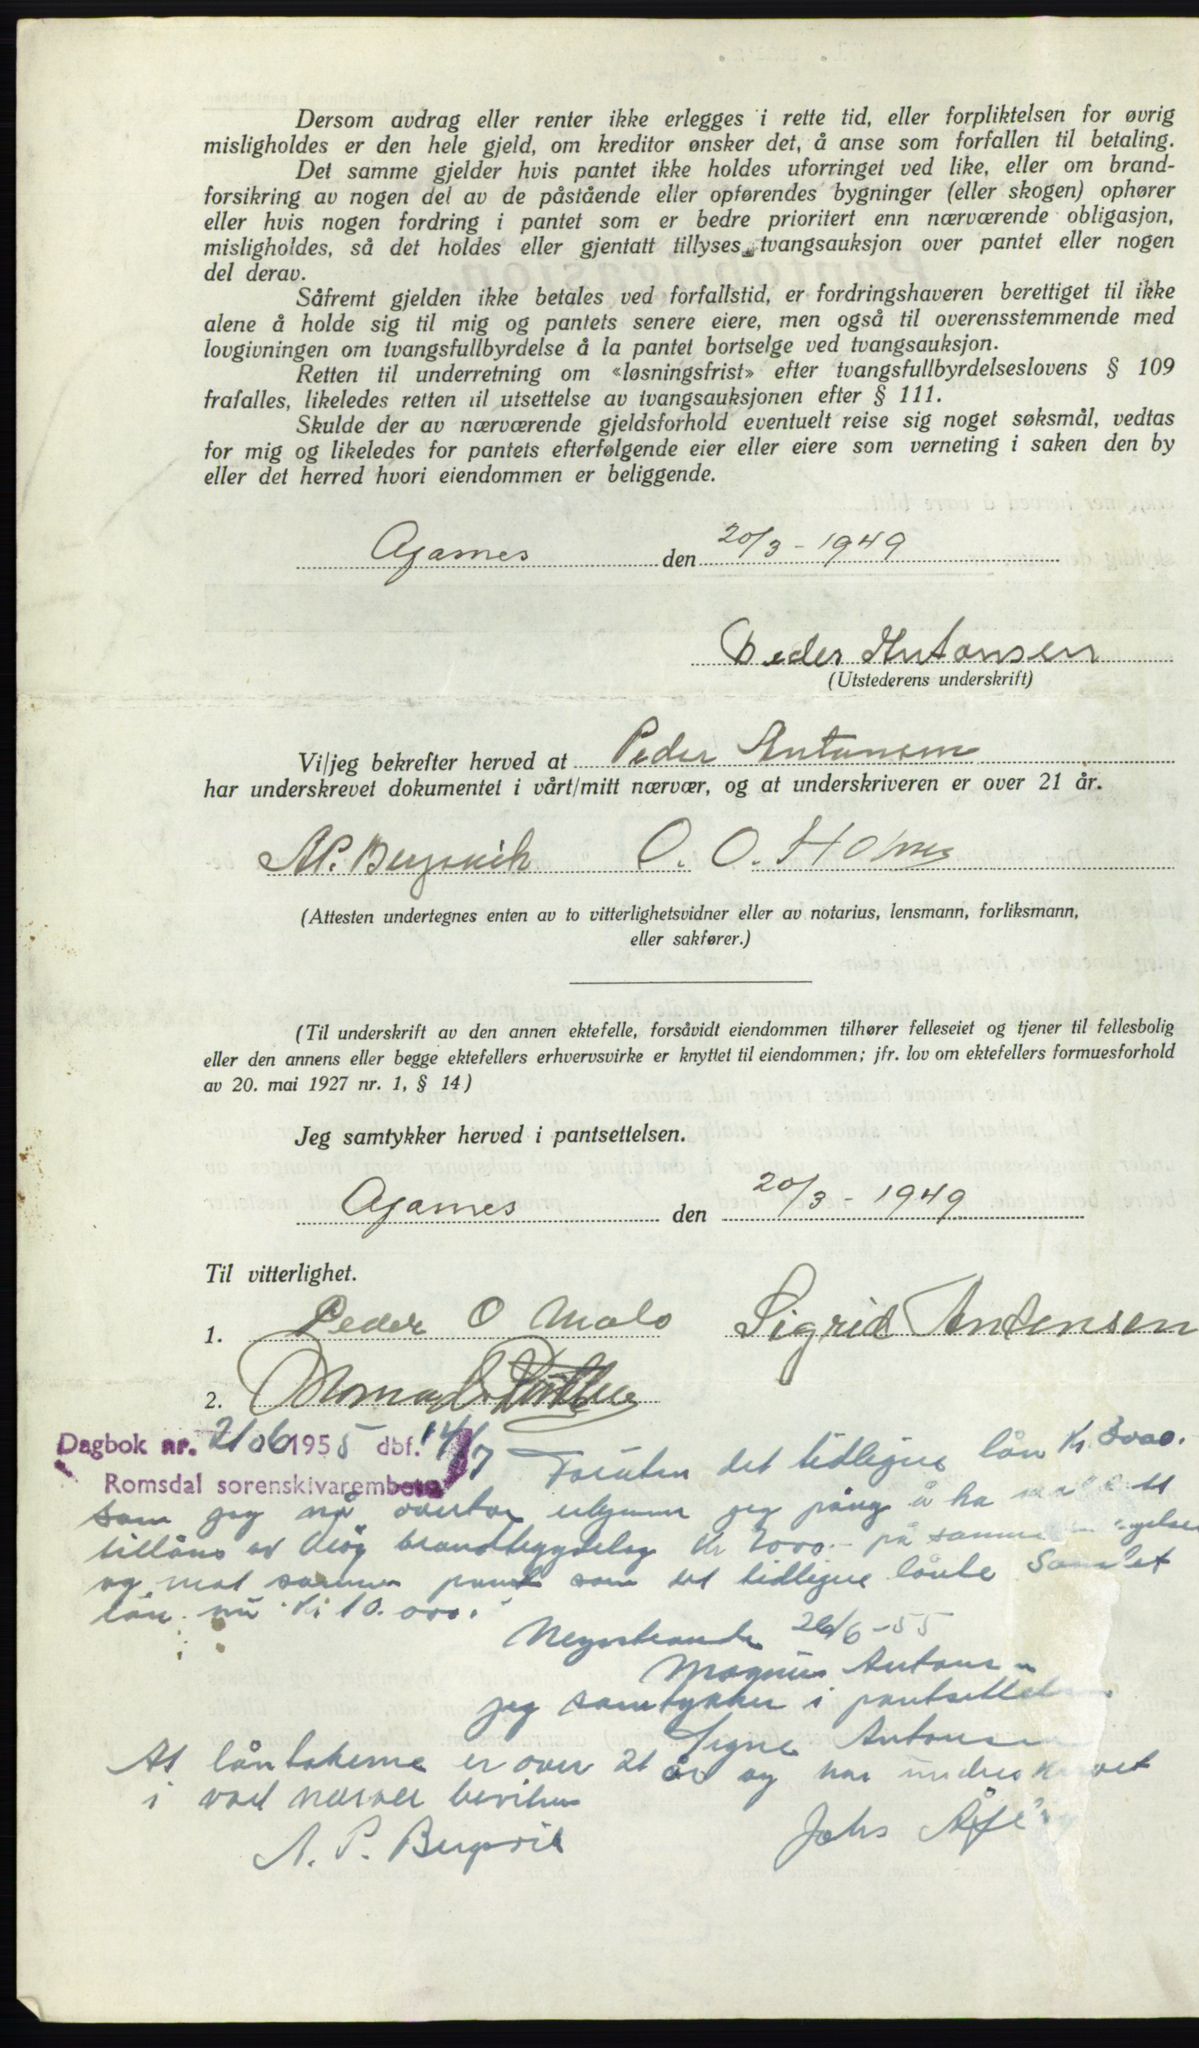 Dersom avdrag eller renter ikke erlegges i rette tid, eller forpliktelsen for øvrig
misligholdes er den hele gjeld, om kreditor ønsker det, å anse som forfallen til betaling.
Det samme gjelder hvis pantet ikke holdes uforringet ved like, eller om brand-
forsikring av nogen del av de påstående eller opførendes bygninger (eller skogen) ophører
eller hvis nogen fordring i pantet som er bedre prioritert enn nærværende obligasjon,
misligholdes, så det holdes eller gjentatt tillyses tvangsauksjon over pantet eller nogen
del derav.
Såfremt gjelden ikke betales ved forfallstid, er fordringshaveren berettiget til ikke
alene å holde sig til mig og pantets senere eiere, men også til overensstemmende med
lovgivningen om tvangsfullbyrdelse å la pantet bortselge ved tvangsauksjon.
Retten til underretning om «løsningsfrist» efter tvangsfullbyrdelseslovens § 109
frafalles, likeledes retten til utsettelse av tvangsauksjonen efter § 111.
Skulde der av nærværende gjeldsforhold eventuelt reise sig noget søksmål, vedtas
for mig og likeledes for pantets efterfølgende eier eller eiere som verneting i saken den by
eller det herred hvori eiendommen er beliggende.
den 20/3 - 1949
Peder Antonsen
(Utstederens underskrift)
Vi/jeg bekrefter herved at Peder Antonsen
har underskrevet dokumentet i vårt/mitt nærvær, og at underskriveren er over 21 år.
A.P. Bugsvik O. O. Holmes
(Attesten undertegnes enten av to vitterlighetsvidner eller av notarius, lensmann, forliksmann,
eller sakfører.)
(Til underskrift av den annen ektefelle, forsåvidt eiendommen tilhører felleseiet og tjener til fellesbolig
eller den annens eller begge ektefellers erhvervsvirke er knyttet til eiendommen; jfr. lov om ektefellers formuesforhold
av 20. mai 1927 nr. 1, § 14)
Jeg samtykker herved i pantsettelsen.
den 20/3 - 1949
Til vitterlighet.
1. Peder O Malo Sigrid Antonsen
2.
Dagbok nr. 2106 1955 dbf. 14/7 Foruten det tidligere lån Kr. 3000.
Romsdal sorenskivarembete
som jeg nå overtar jeg på å ha
tillåns av brandbygdelag Kr 7000.- på samme
og mot samme pant som det tidligere lånte Samlet
lån nu Kr 10.000.-
26/6-55
Magnus Antonsen
jeg samtykker i pantsettelsen
Signe Antonsen
At låntakerne er over 21 år og har underskrevet
i vort nærvær bevitnes
A. P. Bugsvik Johs